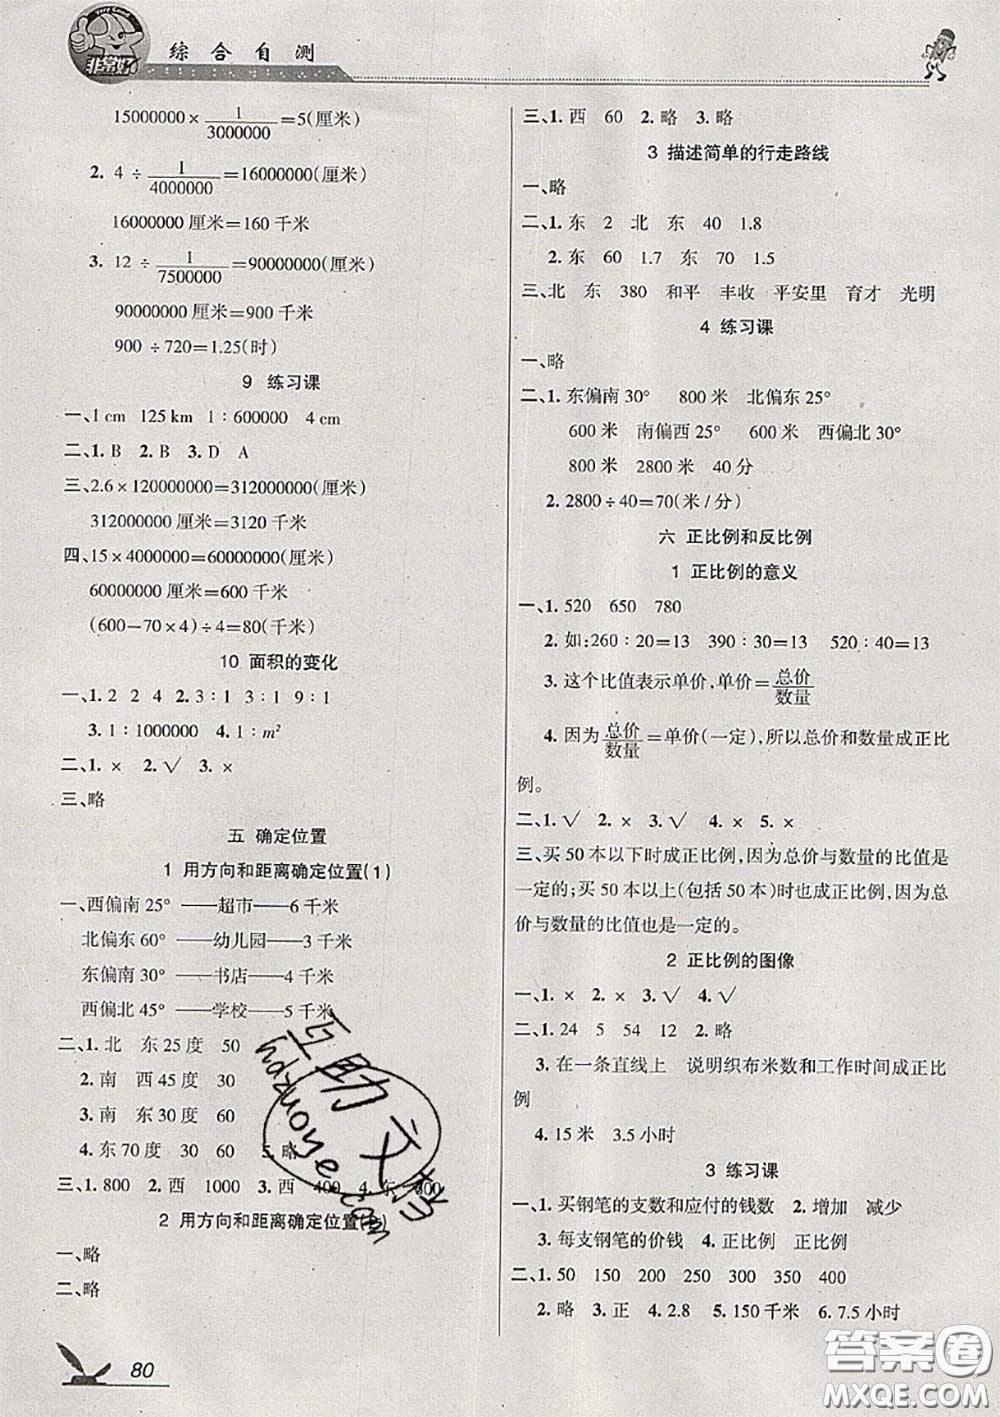 Very Good
非常好
综合自测
15000000×1/3000000=5(厘米)
2. 4÷1/4000000=16000000(厘米)
16000000厘米=160千米
3. 12÷1/7500000=90000000(厘米)
90000000厘米=900千米
900÷720=1.25(时)
9 练习课
一、1 cm 125 km 1∶600000 4 cm
二、1. B 2. B 3. D A
三、2.6×120000000=312000000(厘米)
312000000厘米=3120千米
四、15×4000000=60000000(厘米)
60000000厘米=600千米
(600-70×4)÷4=80(千米)
10 面积的变化
一、1. 2 2 4 2. 3∶1 3∶1 9∶1
3. 1∶1000000 4. 1∶m²
二、1. × 2. √ 3. ×
三、略
五 确定位置
1 用方向和距离确定位置(1)
一、西偏南25° ——超市——6千米
北偏东60° ——幼儿园——3千米
东偏南30° ——书店——4千米
西偏北45° ——学校——5千米
二、1. 北 东25度 50
2. 南 西45度 30
3. 南 东30度 60
4. 东70度 30 60 5. 略
三、1. 800 2. 西 1000 3. 西 400 4. 东 800
2 用方向和距离确定位置
一、略
二、略
80
三、1. 西 60 2. 略 3. 略
3 描述简单的行走路线
一、略
二、1. 东 2 北 东 40 1.8
2. 东 60 1.7 东 70 1.5
三、北 东 380 和平 丰收 平安里 育才 光明
4 练习课
一、略
二、1. 东偏南30° 800米 北偏东25°
600米 南偏西25° 600米 西偏北30°
800米 2800米 40分
2. 2800÷40=70(米/分)
六 正比例和反比例
1 正比例的意义
一、1. 520 650 780
2. 如:260∶20=13 390∶30=13 520∶40=13
3. 这个比值表示单价,单价=总价/数量
4. 因为总价/数量=单价(一定),所以总价和数量成正比
例。
二、1. √ 2. × 3. √ 4. × 5. ×
三、买50本以下时成正比例,因为总价与数量的比值是
一定的;买50本以上(包括50本)时也成正比例,因为总
价与数量的比值也是一定的。
2 正比例的图像
一、1. × 2. × 3. √ 4. √
二、1. 24 5 54 12 2. 略
3. 在一条直线上 说明织布米数和工作时间成正比
例
4. 15米 3.5小时
3 练习课
一、1. 买钢笔的支数和应付的钱数 2. 增加 减少
3. 每支钢笔的价钱 4. 正比例 正比例
二、1. 50 150 200 250 300 350 400
2. 略 3. 正 4. 2.8 5. 150千米 6. 7.5小时
互助文档
hdzuoye.com
答案圈
MXQE.COM